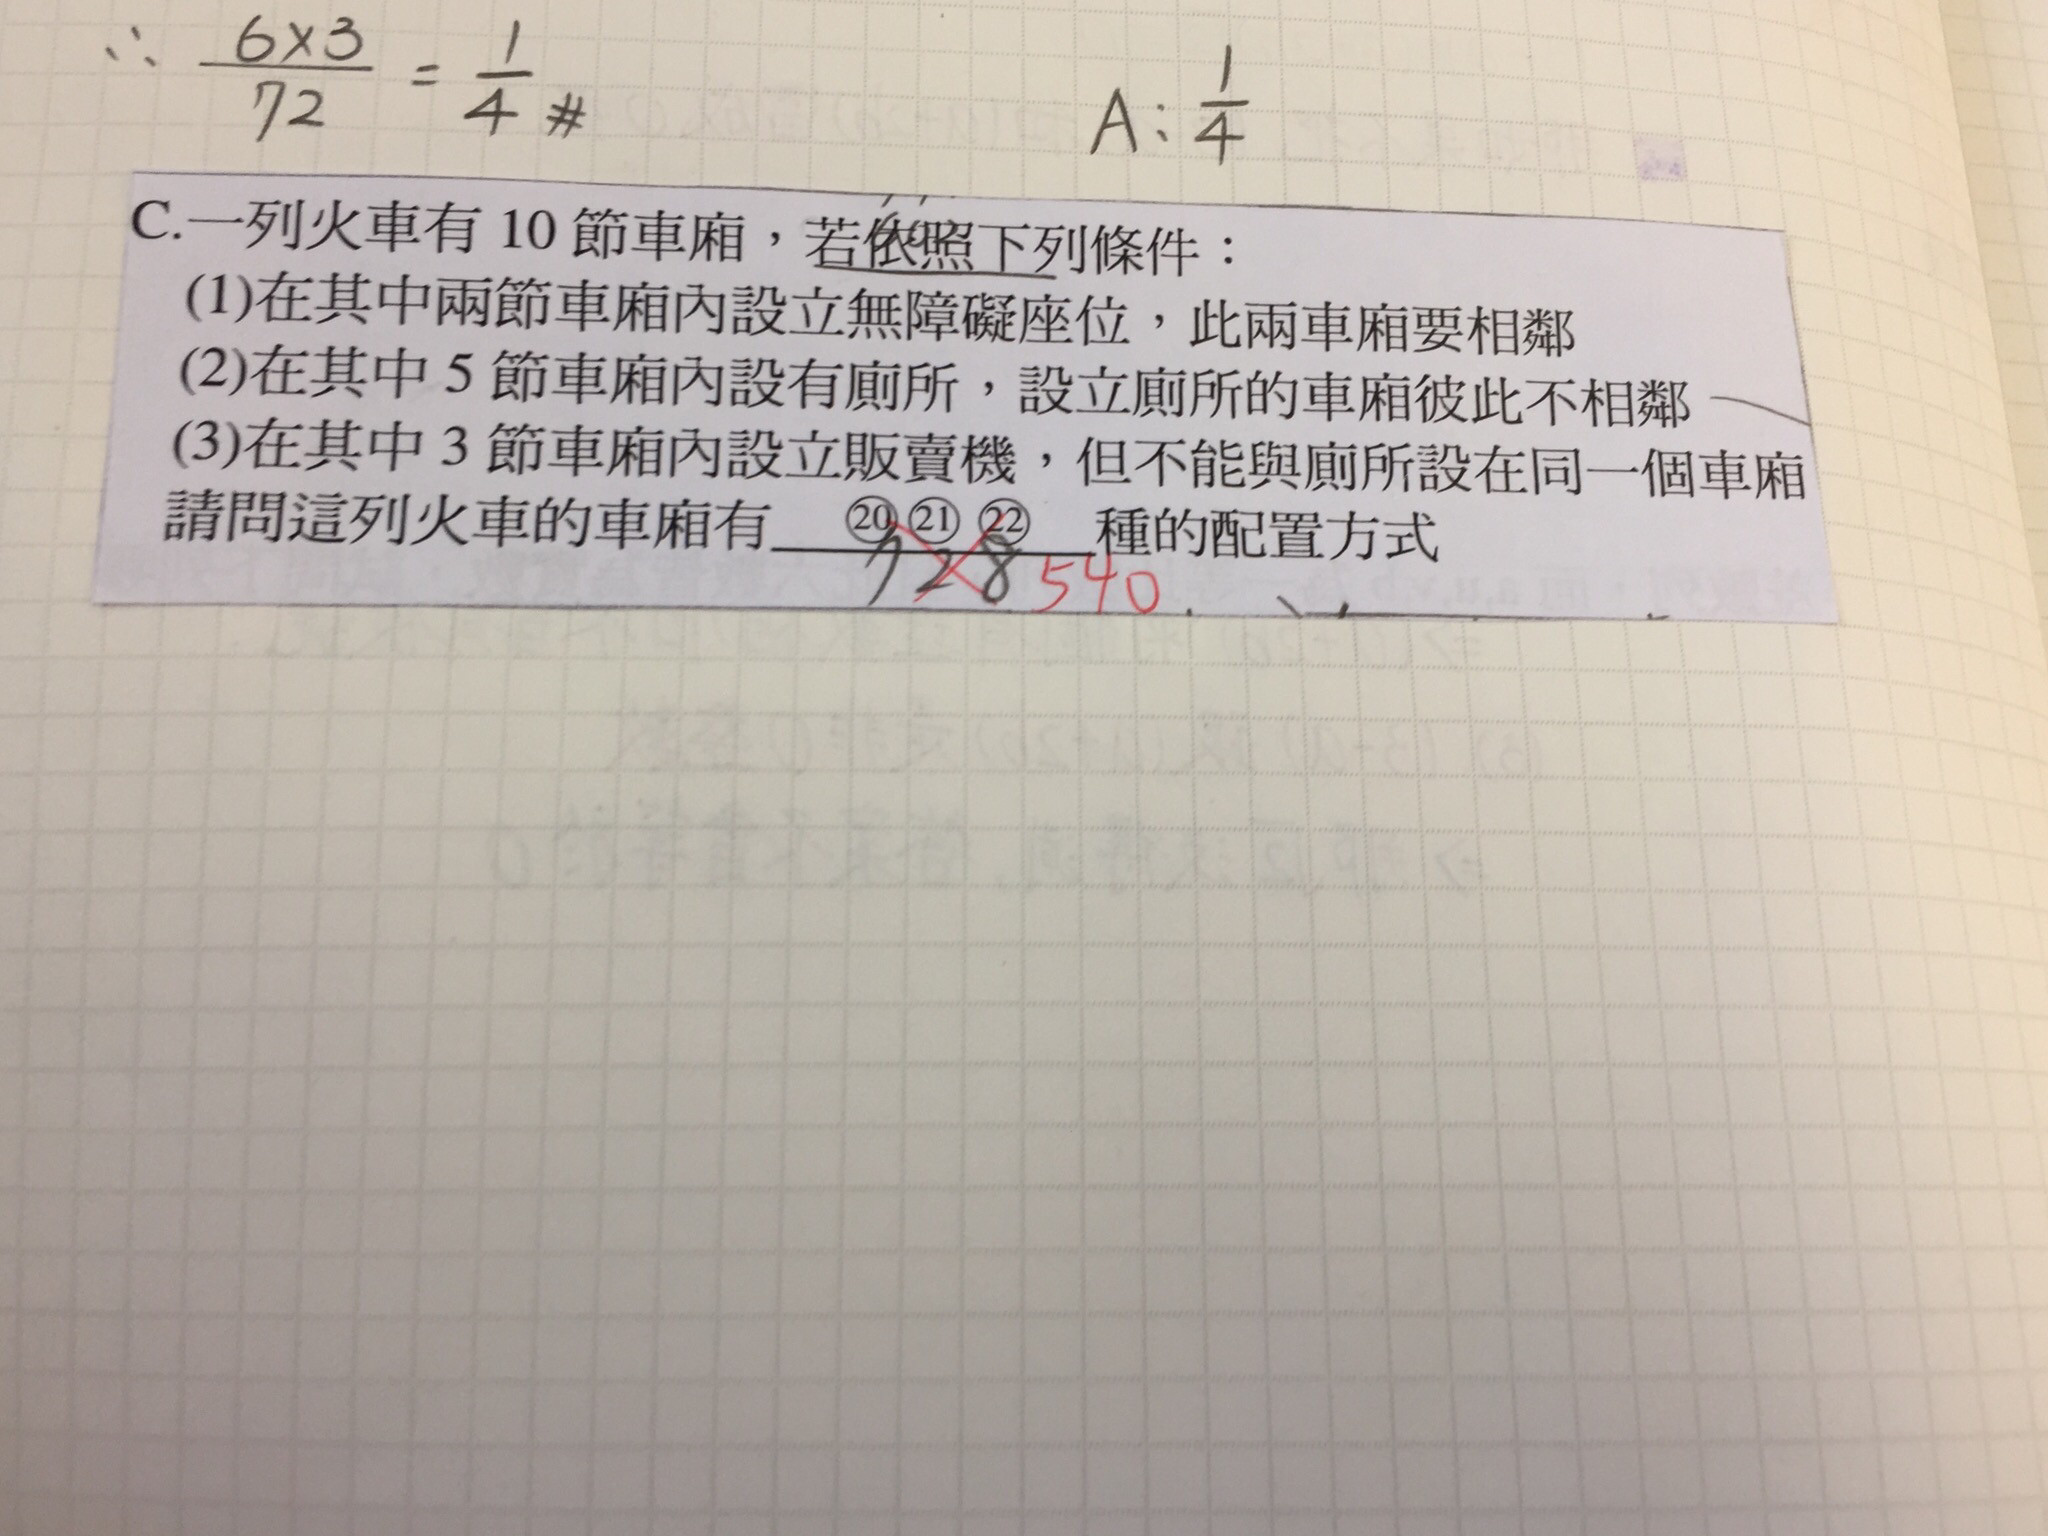 ∴ 6×3/72 = 1/4 #
A: 1/4
C.一列火車有 10 節車廂，若依照下列條件：
(1)在其中兩節車廂內設立無障礙座位，此兩車廂要相鄰
(2)在其中 5 節車廂內設有廁所，設立廁所的車廂彼此不相鄰
(3)在其中 3 節車廂內設立販賣機，但不能與廁所設在同一個車廂
請問這列火車的車廂有 ⑳ ㉑ ㉒ 種的配置方式
728 540